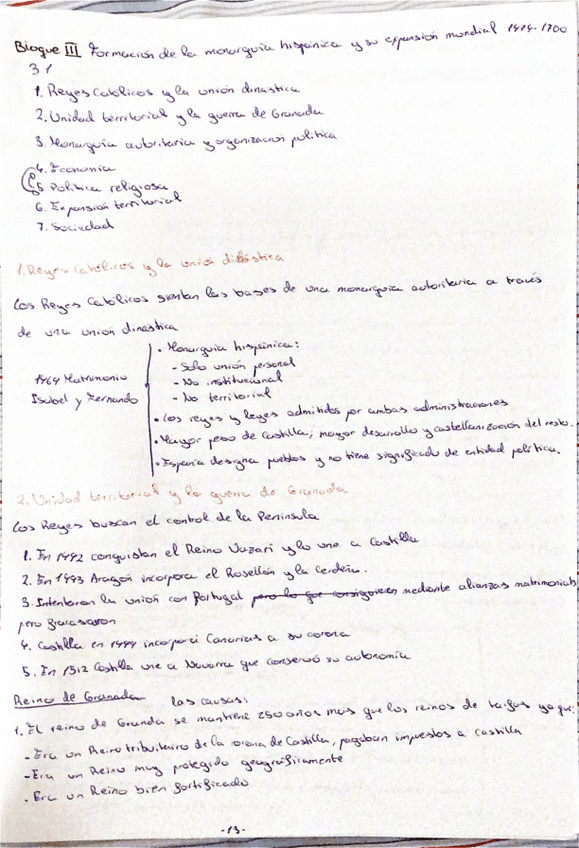 Bloque III Formación de la monarquía hispánica y su expansión mundial 1474-1700
3.1
1. Reyes Católicos y la unión dinastica
2. Unidad territorial y la guerra de Granada
3. Monarquía autoritaria y organizacion politica
4. Economia
5. Politica religiosa
6. Expansión territorial
7. Sociedad
1. Reyes Católicos y la unión dinástica
Los Reyes Catolicos sientan las bases de una monarquia autoritaria a través
de una union dinastica
1469 Matrimonio
Isabel y Fernando
• Monarquia hispánica:
- Solo unión personal
- No institucional
- No territorial
• Los reyes y leyes admitidos por ambas administraciones
• Mayor peso de Castilla, mayor desarrollo y castellanización del resto.
• España designa pueblos y no tiene significado de entidad política.
2. Unidad territorial y la guerra de Granada
Los Reyes buscan el control de la Peninsula
1. En 1492 conquistan el Reino Nazarí y lo une a Castilla
2. En 1493 Aragón incorpora el Rosellón y la cerdeña.
3. Intentaron la unión con Portugal pero lo que consiguieron mediante alianzas matrimoniales
pero fracasaron
4. Castilla en 1494 incorporó Canarias a su corona
5. En 1512 Castilla une a Navarra que conservó su autonomia
Reino de Granada las causas:
1. El reino de Granda se mantiene 250 años más que los reinos de taifas ya que:
- Era un Reino tributario de la corona de Castilla, pagaban impuestos a castilla
- Era un Reino muy protegido geográficamente
. Era un Reino bien fortificado
-13-